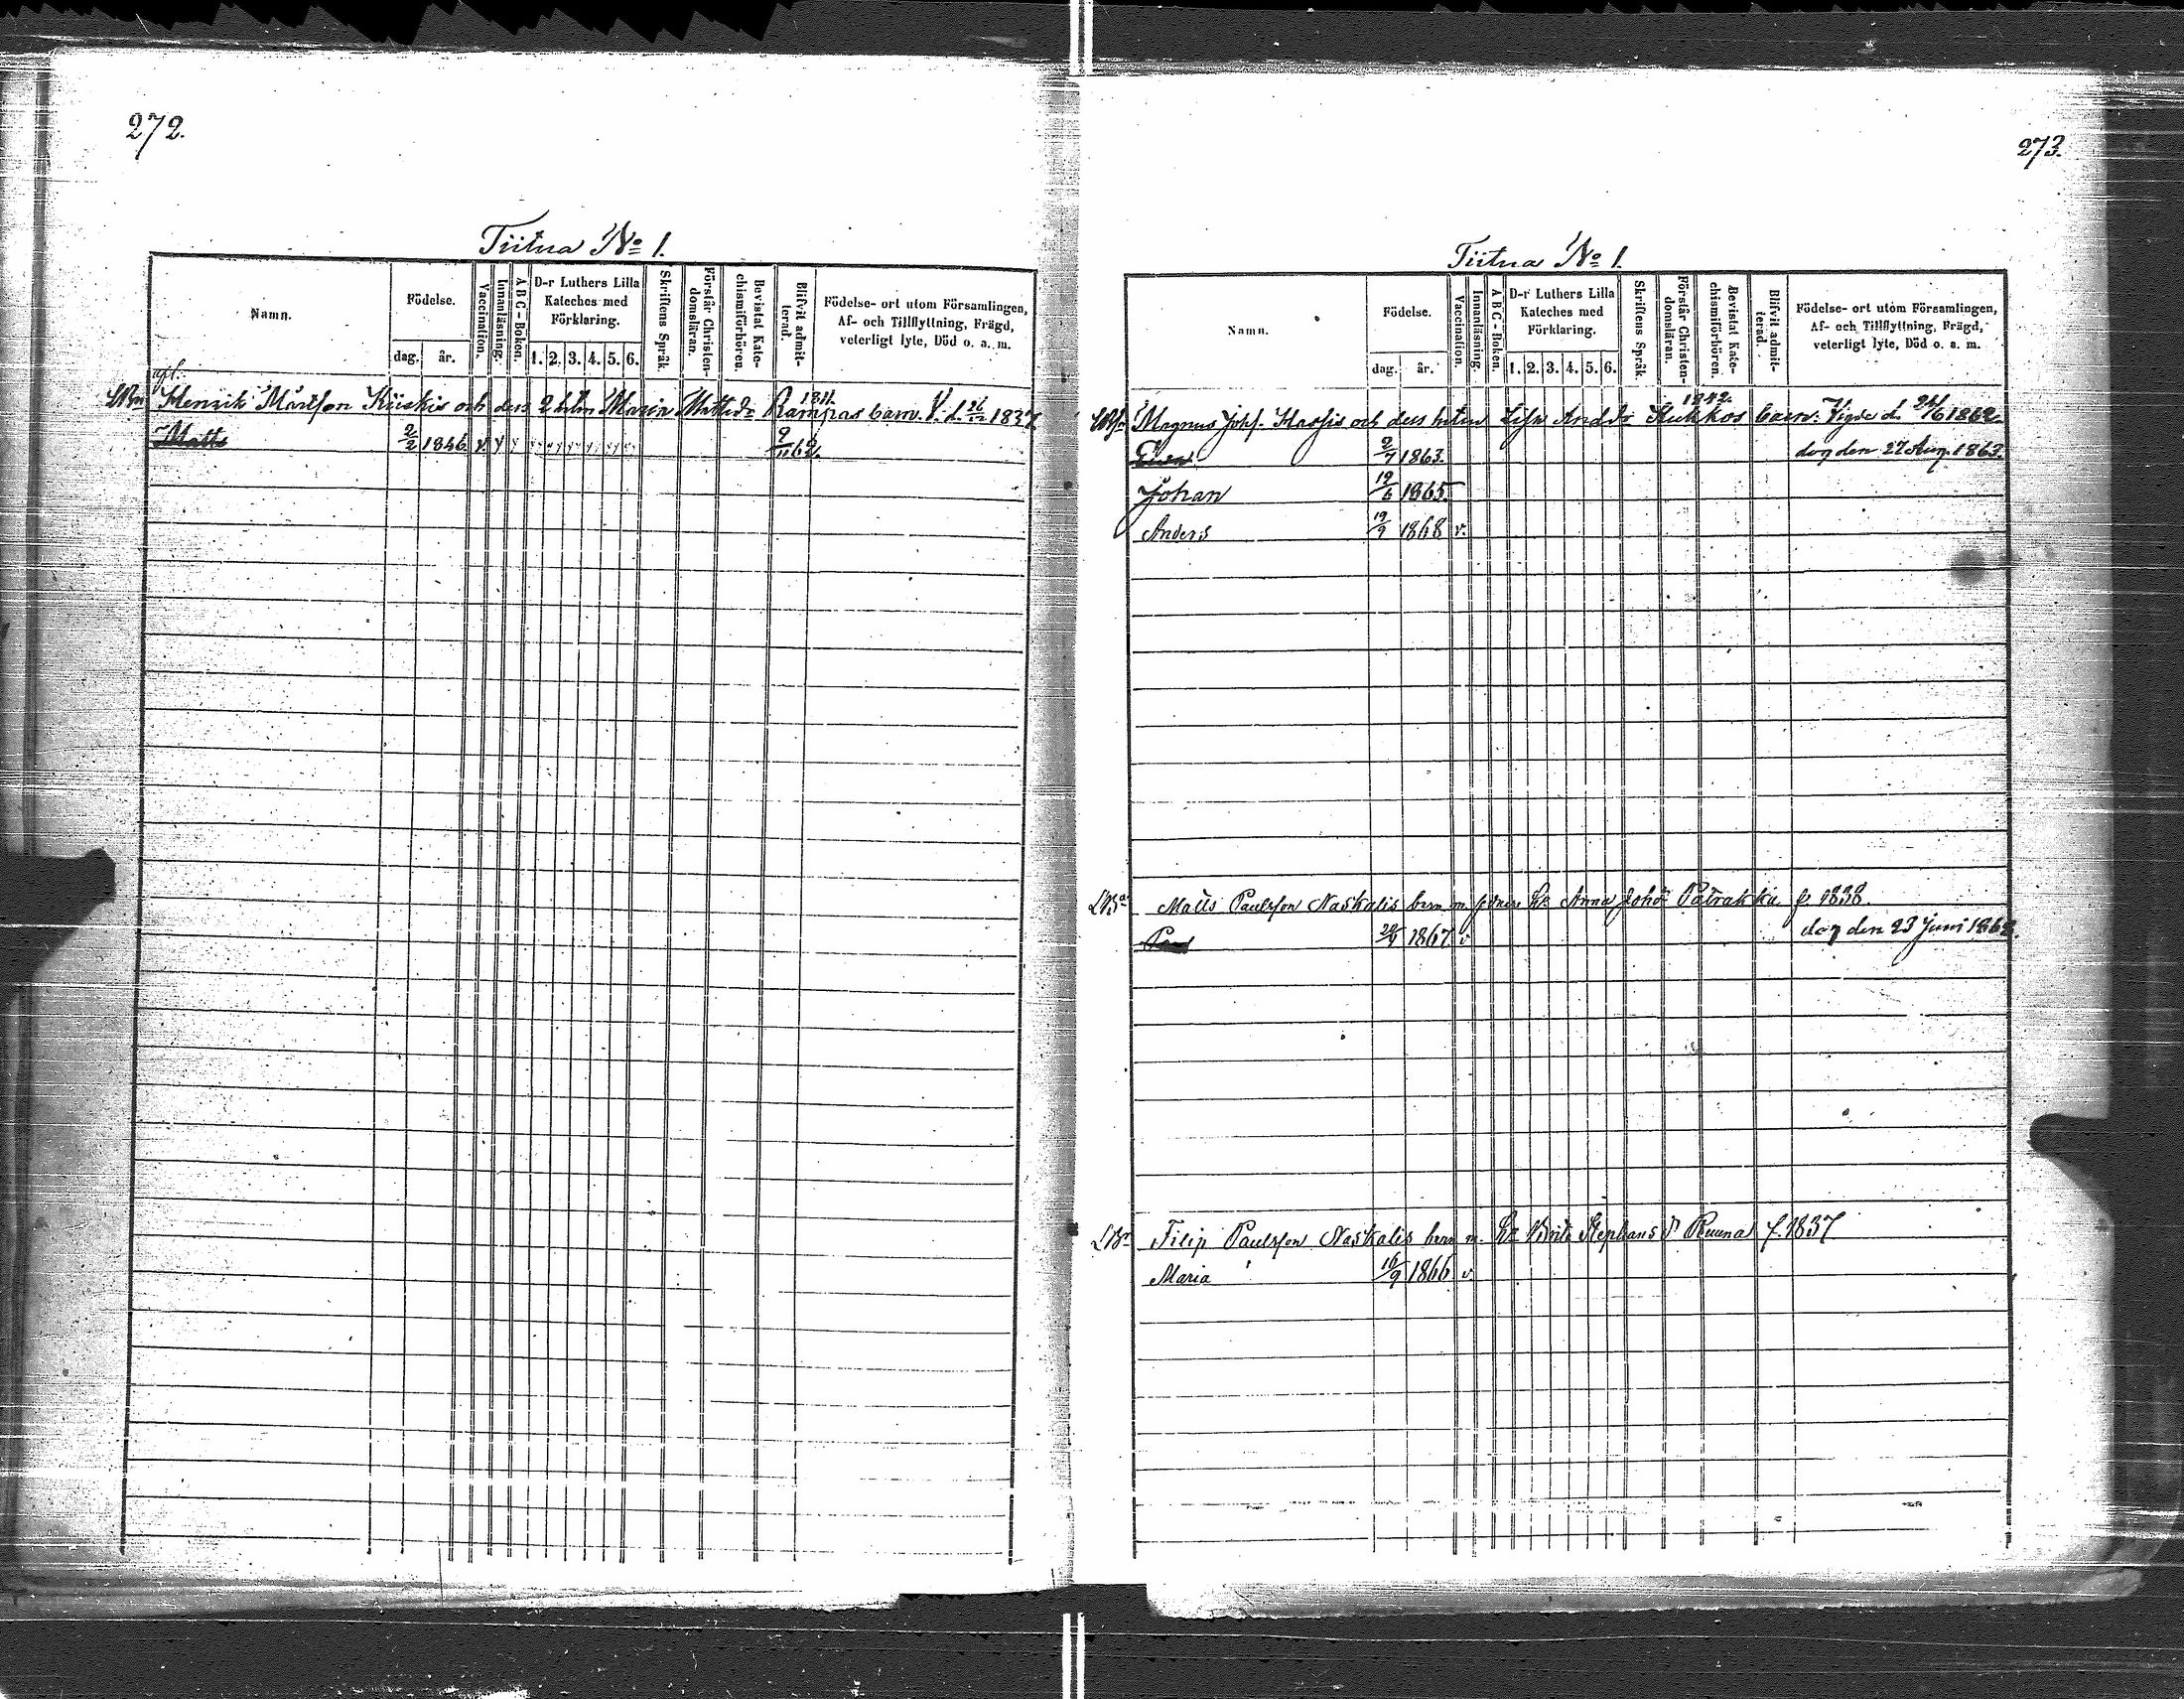 272.
Tiitua No 1.
Namn.
Födelse.
dag.
år.
Vaccination.
Innanläsning.
A B C - Boken.
D-r Luthers Lilla
Kateches med
Förklaring.
1. 2. 3. 4. 5. 6.
Skriftens Språk.
Förstår Christen-
domsläran.
Bevistat Kate-
chismiförhören.
Blifvit admit-
terad.
Födelse- ort utom Församlingen,
Af- och Tillflyttning, Frägd,
veterligt lyte, Död o. a. m.
1811.
Henrik Mårtson Kiiskis och dess 2 hstn Maria Mattsdr Rampas barn. V. d. 26/12 1837
Matts 2/2 1846. v. 9/11 62.
273.
Tiitua No 1.
Namn.
Födelse.
dag.
år.
Vaccination.
Innanläsning.
A B C - Boken.
D-r Luthers Lilla
Kateches med
Förklaring.
1. 2. 3. 4. 5. 6.
Skriftens Språk.
Förstår Christen-
domsläran.
Bevistat Kate-
chismiförhören.
Blifvit admit-
terad.
Födelse- ort utom Församlingen,
Af- och Tillflyttning, Frägd,
veterligt lyte, Död o. a. m.
1842.
Magnus Johs. och dess hstru Lisa Anddr Kukkos barn. Vigde d. 24/6 1862.
2/7 1863. dog den 27 Aug. 1863.
Johan 12/6 1865.
Anders 19/9 1868 v.
Matts Paulsson Naskalis barn m. Anna Johdr Patrakka f. 1838.
Paul 1867. v. dog den 23 Juni 1868.
Filip Paulsson Naskalis barn m. Stephans dr Ruuna f. 1837
Maria 16/9 1866 v.